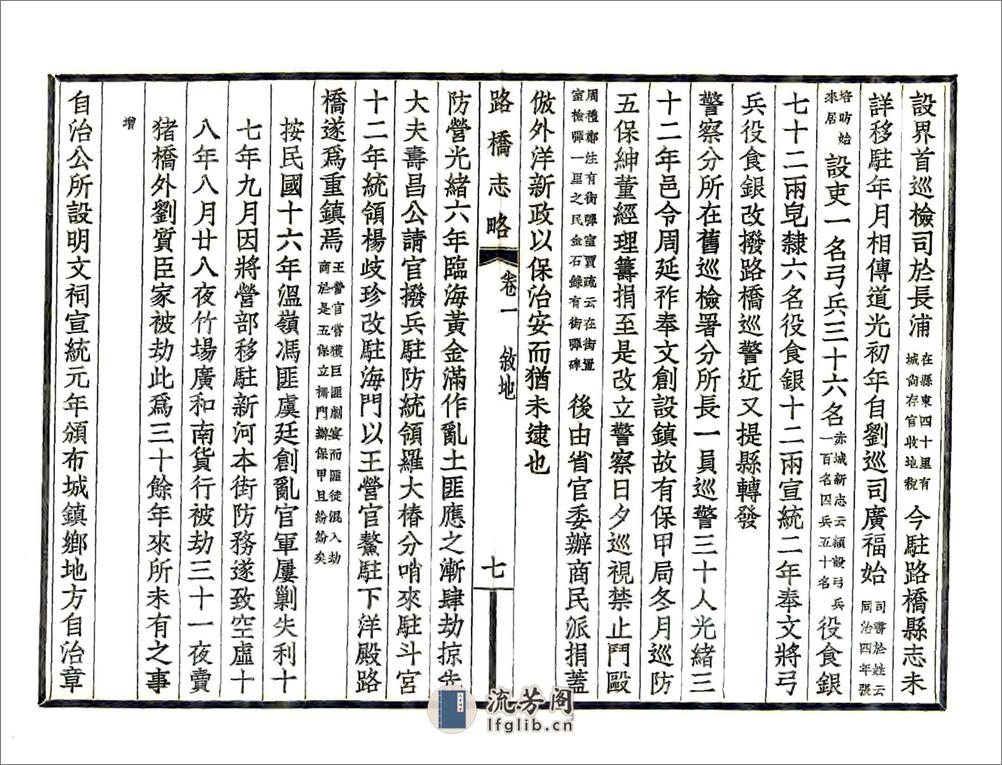 設界首巡檢司於長浦在縣東四十里有城尙存官收地稅今駐路橋縣志未
詳移駐年月相傳道光初年自劉巡司廣福始司書於姓云同治四年張
培昉始來居設吏一名弓兵三十六名赤城新志云額設弓兵一百名囚兵五十名役食銀
七十二兩皂隸六名役食銀十二兩宣統二年奉文將弓
兵役食銀改撥路橋巡警近又提縣轉發
警察分所在舊巡檢署分所長一員巡警三十人光緒三
十二年邑令周延祚奉文創設鎮故有保甲局冬月巡防
五保紳董經理籌捐至是改立警察日夕巡視禁止鬥毆
周禮鄭注有街彈室賈疏云在街置室檢彈一里之民金石錄有街彈碑後由省官委辦商民派捐蓋
倣外洋新政以保治安而猶未逮也
路橋志略 卷一 敘地 七
防營光緒六年臨海黃金滿作亂土匪應之漸肆劫掠先
大夫壽昌公請官撥兵駐防統領羅大椿分哨來駐斗宮
十二年統領楊歧珍改駐海門以王營官鰲駐下洋殿路
橋遂爲重鎮焉王營官嘗獲巨匪劇宴而匪徒混入劫商於是五保立柵門辦保甲且紛紛矣
按民國十六年溫嶺馮匪虞廷創亂官軍屢剿失利十
七年九月因將營部移駐新河本街防務遂致空虛十
八年八月廿八夜竹場廣和南貨行被劫三十一夜賣
猪橋外劉質臣家被劫此爲三十餘年來所未有之事
增
自治公所設明文祠宣統元年頒布城鎮鄉地方自治章
流芳阁
lfglib.cn